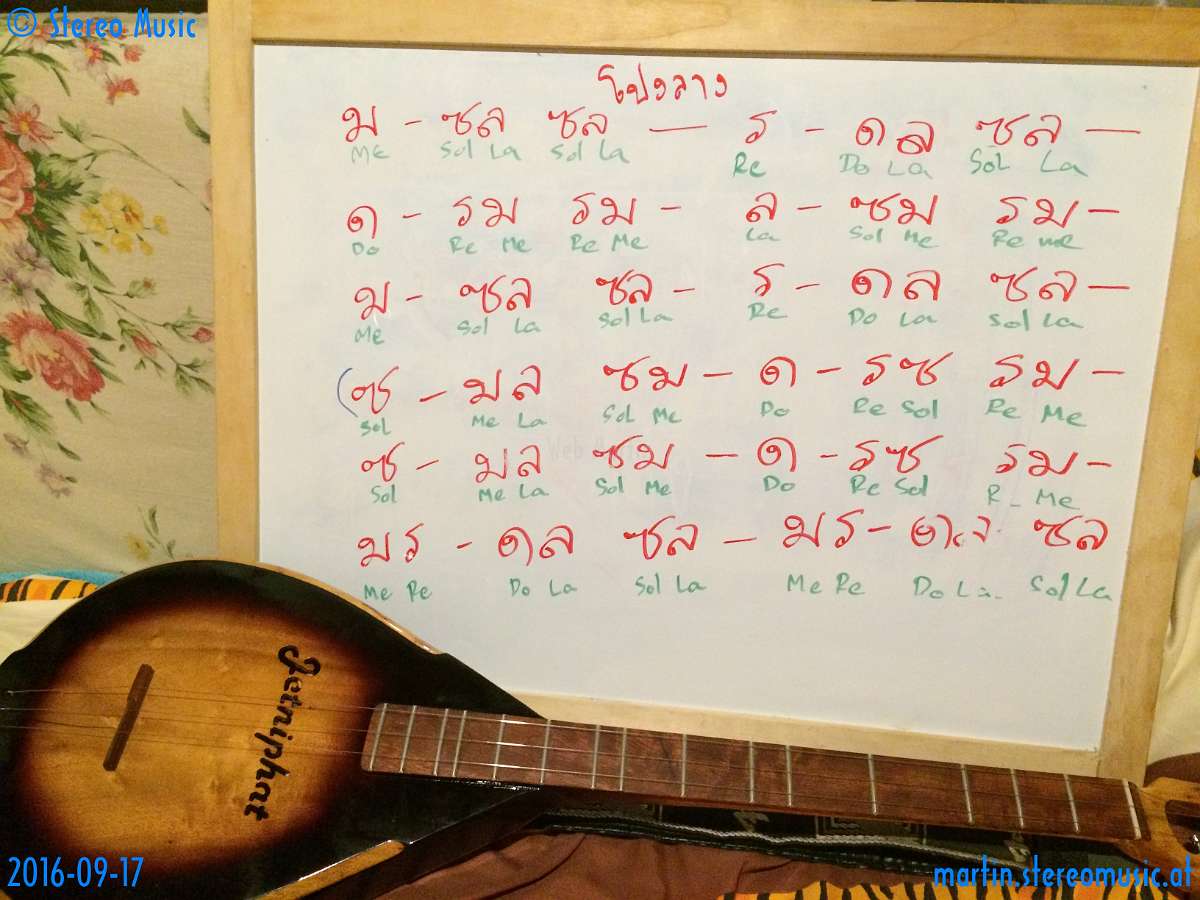 © Stereo Music
โปงลาง
ม - ซล ซล — ร - ดล ซล —
Me Sol La Sol La Re Do La Sol La
ด - รม รม - ล - ซม รม -
Do Re Me Re Me La Sol Me Re me
ม - ซล ซล - ร - ดล ซล -
Me Sol La Sol La Re Do La Sol La
(ซ - มล ซม - ด - รซ รม -
Sol Me La Sol Me Do Re Sol Re Me
ซ - มล ซม - ด - รซ รม -
Sol Me La Sol Me Do Re Sol R - Me
มร - ดล ซล - มร - ซล
Me Re Do La Sol La Me Re Do La Sol La
Jetniphat
2016-09-17
martin.stereomusic.at